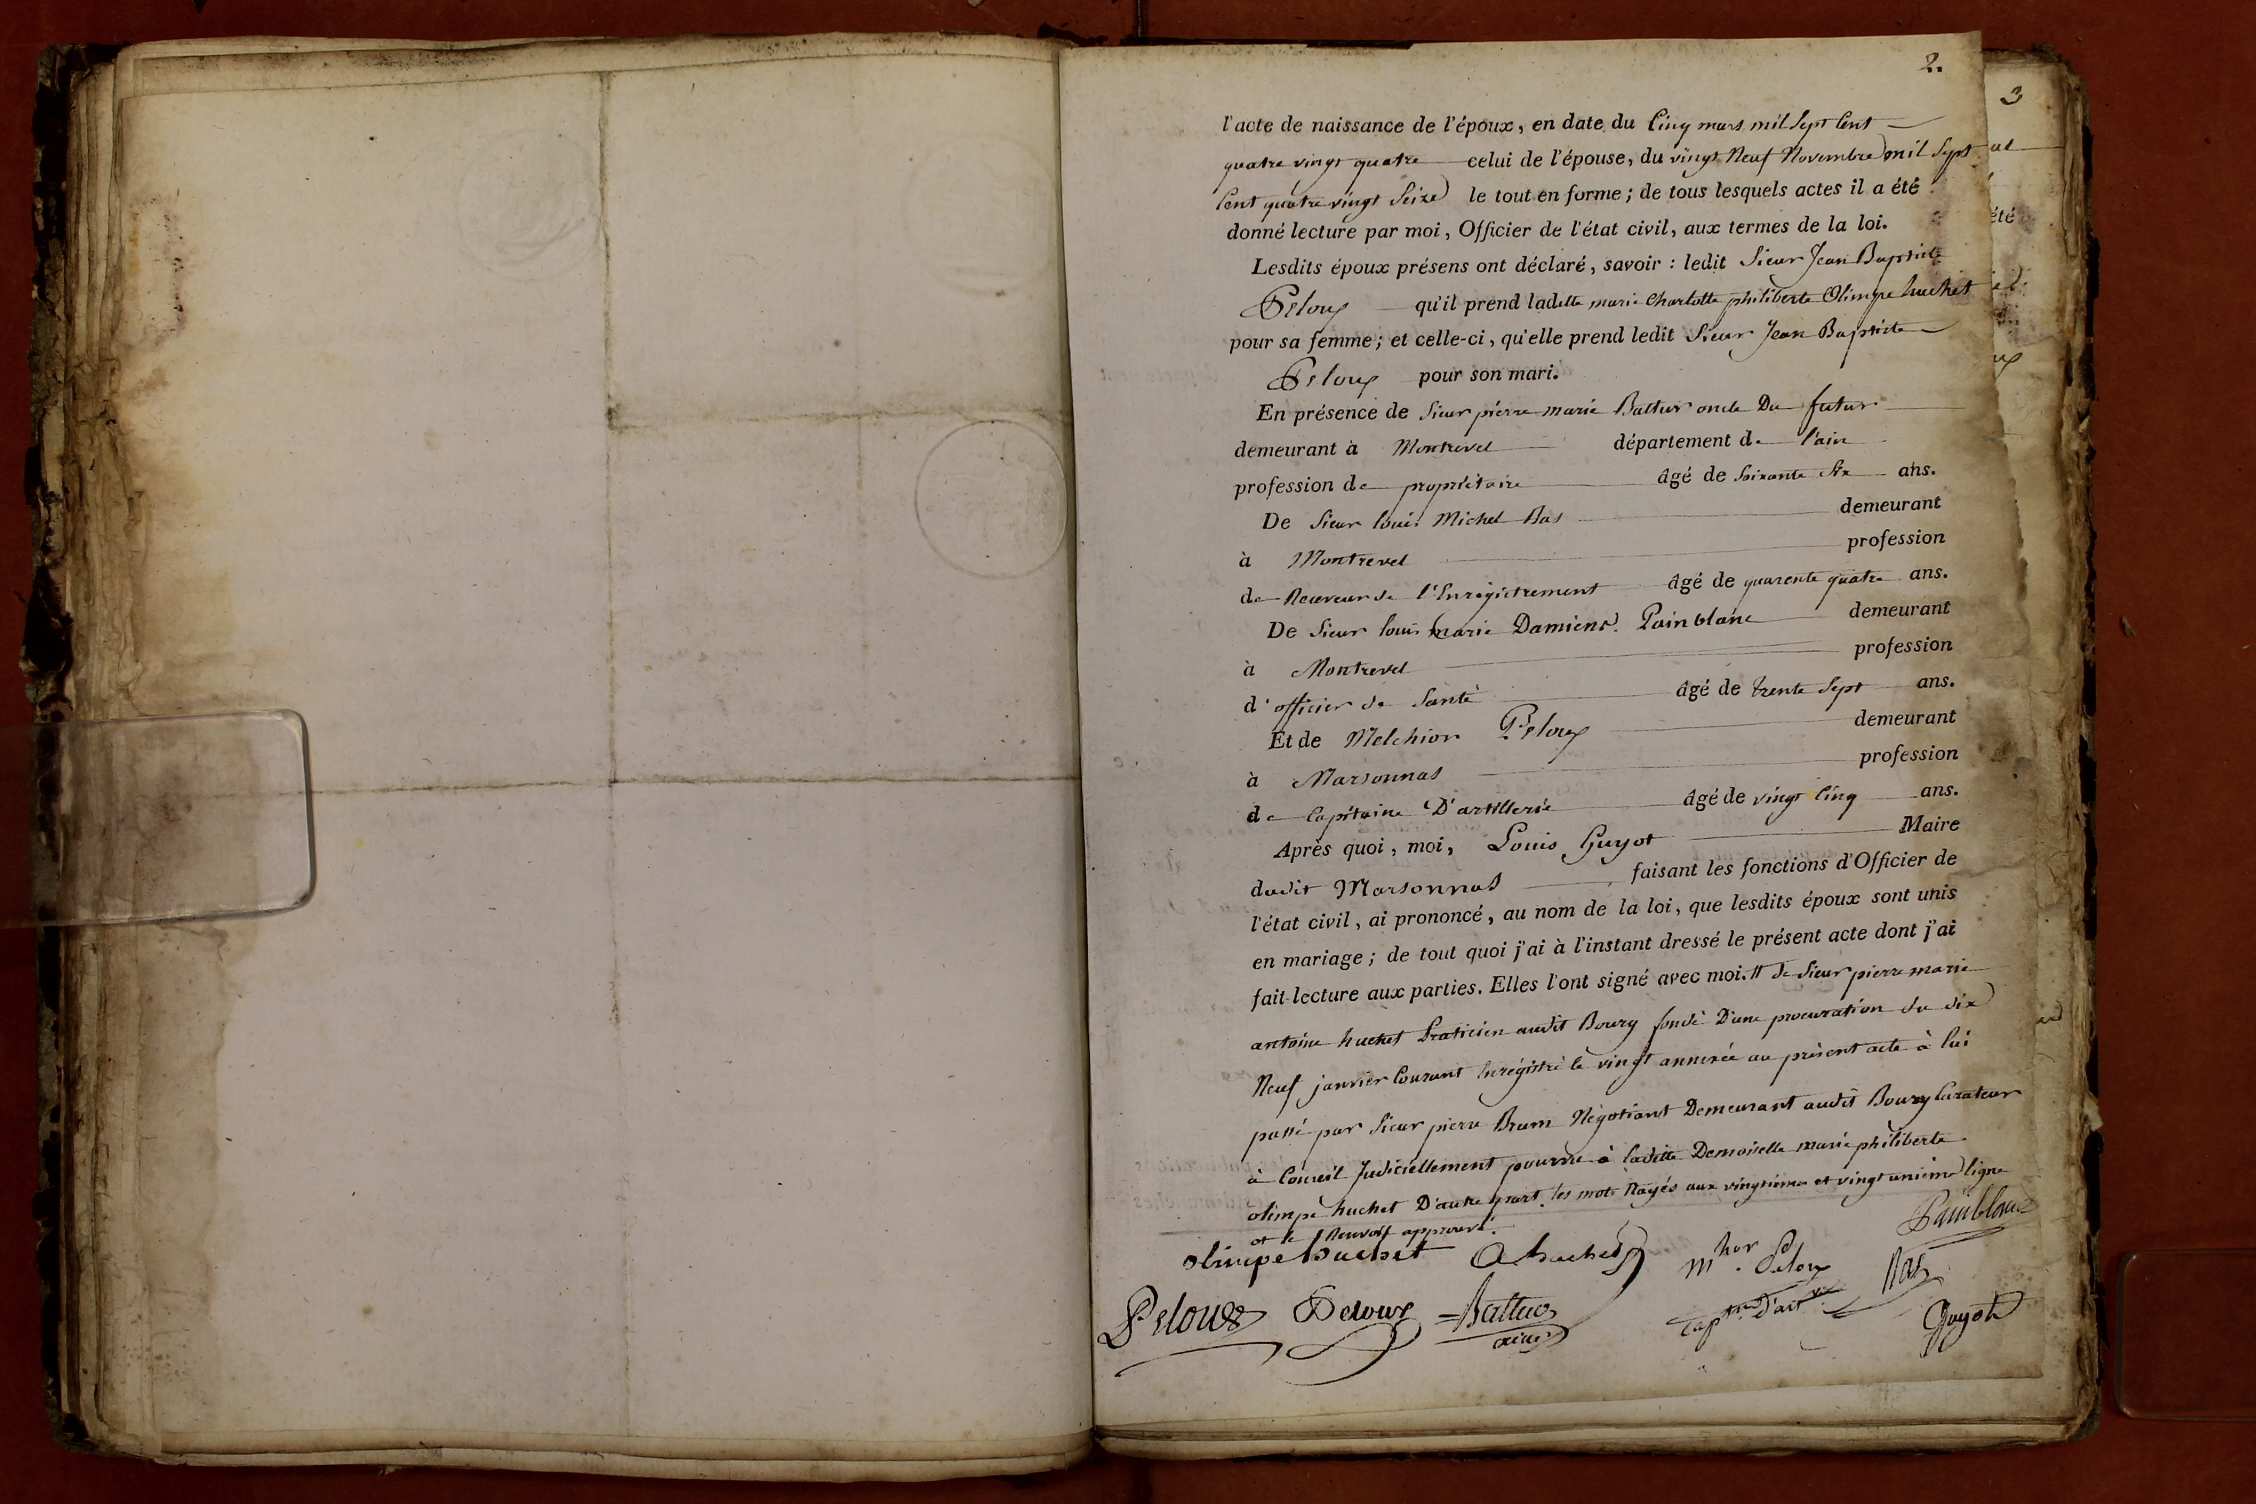 2.
3
l'acte de naissance de l'époux, en date du Cinq mars mil Sept Cent
quatre vingt quatre celui de l'épouse, du vingt Neuf Novembre mil Sept
Cent quatre vingt Seize le tout en forme; de tous lesquels actes il a été
donné lecture par moi, Officier de l'état civil, aux termes de la loi.
Lesdits époux présens ont déclaré, savoir : ledit Sieur Jean Baptiste
Peloux qu'il prend ladelle marie Charlotte philiberte Olimpe huchet
pour sa femme; et celle-ci, qu'elle prend ledit Sieur Jean Baptiste
Peloux pour son mari.
En présence de Sieur pierre marie Battur oncle Du futur
demeurant à Montrevel département de l'ain
profession de propriétaire âgé de Soixante Six ans.
De Sieur louis Michel Bas demeurant
à Montrevel profession
de Receveur de l'Enregistrement âgé de quarente quatre ans.
De Sieur louis marie Damiens Painblanc demeurant
à Montrevel profession
d'officier de Santé âgé de trente Sept ans.
Et de Melchior Peloux demeurant
à Marsonnas profession
de Capitaine D'artillerie âgé de vingt Cinq ans.
Après quoi, moi, Louis Guyot Maire
dudit Marsonnas faisant les fonctions d'Officier de
l'état civil, ai prononcé, au nom de la loi, que lesdits époux sont unis
en mariage; de tout quoi j'ai à l'instant dressé le présent acte dont j'ai
fait lecture aux parties. Elles l'ont signé avec moi. // de Sieur pierre marie
antoine huchet Praticien audit Bourg fondé D'une procuration du dix
Neuf janvier Courant Enrégistré le vingt annexée au présent acte à lui
passé par Sieur pierre Brum Négotiant Demeurant audit Bourg Curateur
à Conseil Judiciellement pourvu à ladite Demoiselle marie philiberte
olimpe huchet D'autre part. les mots Rayés aux vingtieme et vingt unième ligne
et le Renvoy approuvé.
Painblanc
olimpe huchet A huchet mhor Peloux Bas
Peloux Peloux Battur ainé capne d'artie Guyot